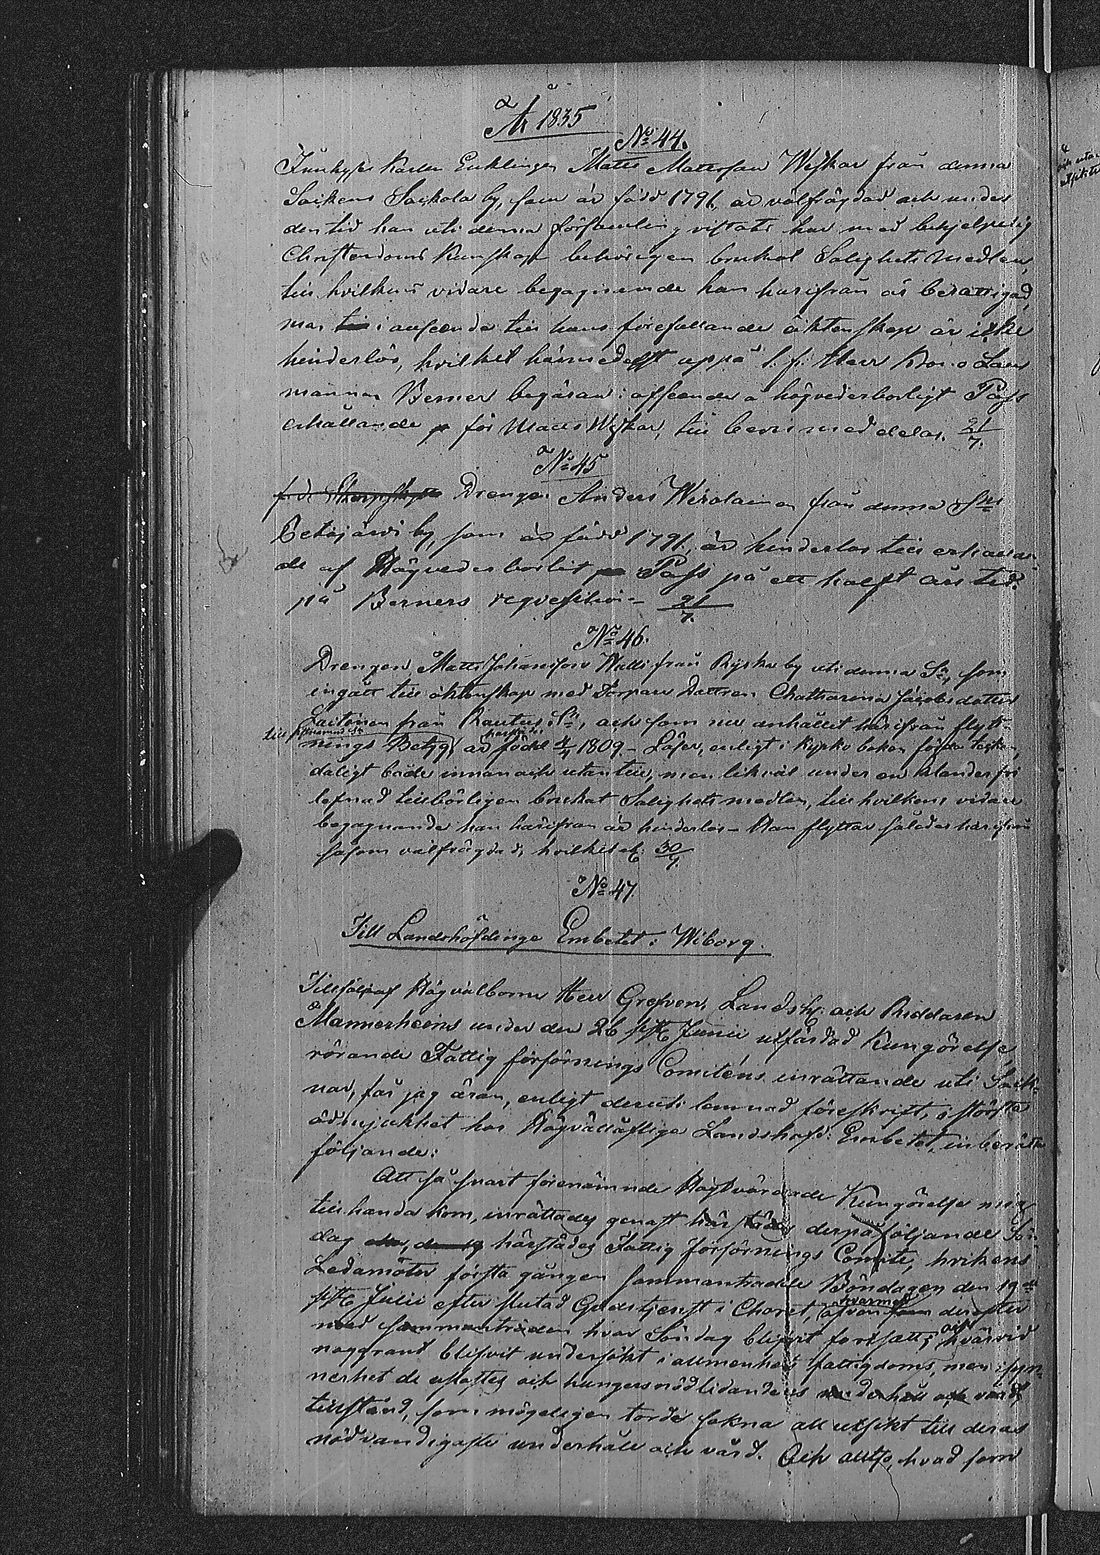 År 1835
No 44.
Inhyses Karlen Enklingen Matts Mattsson Wijkar från denna
Sockens Sackola by, som är född 1791, är välfrägdad och under
den tid han uti denna församling vistats har med behjelpelig
Christendoms Kunskap behörigen brukat Salighets medlen,
till hvilkens vidare begagnande han härifrån är berättigad,
men i anseende till hans förefallande äktenskap är icke
hinderlös, hvilket härmedelst uppå Herr Kron o Läns
mannen Berner begäran i afseende å högvederborligt Pass
erhållande för Matts Wijkar, till bevis meddelas. 21/7.
No 45
Drengen Anders Wirolainen från denna Sns
Petäjärvi by, som är född 1791, är hinderlös till erhållan-
de af Högvederbörligt Pass på ett halft års tid.
på Berners requisition 21/7.
No 46.
Drengen Matts Johansson Walli från Ryska by uti denna Sn, som
ingått till äktenskap med Torpare Dottren Chatharina Jacobsdotter
Laitinen från Rautus Sn, och som nu anhållit härifrån flytt-
nings Betyg, är född 1809 - Läser, enligt Kyrko boken
dåligt både innan och utantill, men likväl under en klanderfri
lefnad tillbörligen brukat Salighets medlen, till hvilkens vidare
begagnande han härifrån är hinderlös - Han flyttar således härifrån
såsom välfrägdad, hvilket etc 30/7.
No 47.
Till Landshöfdinge Embetet i Wiborg.
Till följe af Högvälborne Herr Grefven, Landsh. och Riddaren
Mannerheims under den 26 Junii utfärdad Kungörelse
rörande Fattig försörjnings Comiténs inrättande uti Sock-
nar, får jag äran, enligt deruti lemnad föreskrift, i största
ödmjukhet hos Högvällöflige Landshöfd: Embetet, inberätta
följande:
Att så snart förenämnde Högtvärderde Kungörelse mig
tillhanda kom, inrättades genast härstädes derpå följande Sön
dag härstädes Fattig försörjnings Comité, hvilkens
Ledamöter första gången sammanträdde Böndagen den 19
Julii efter slutad Gudstjenst i Choret, derefter
med sammanträden hvar Söndag blifvit fortsatt; hvarvid
noggrant blifvit undersökt i allmenhet fattigdoms, men i syn-
nerhet de usattes och hungersnödlidandens
tillstånd, som möjeligen torde sakna all utsikt till deras
nödvändigaste underhåll och vård. Och alltså, hvad som